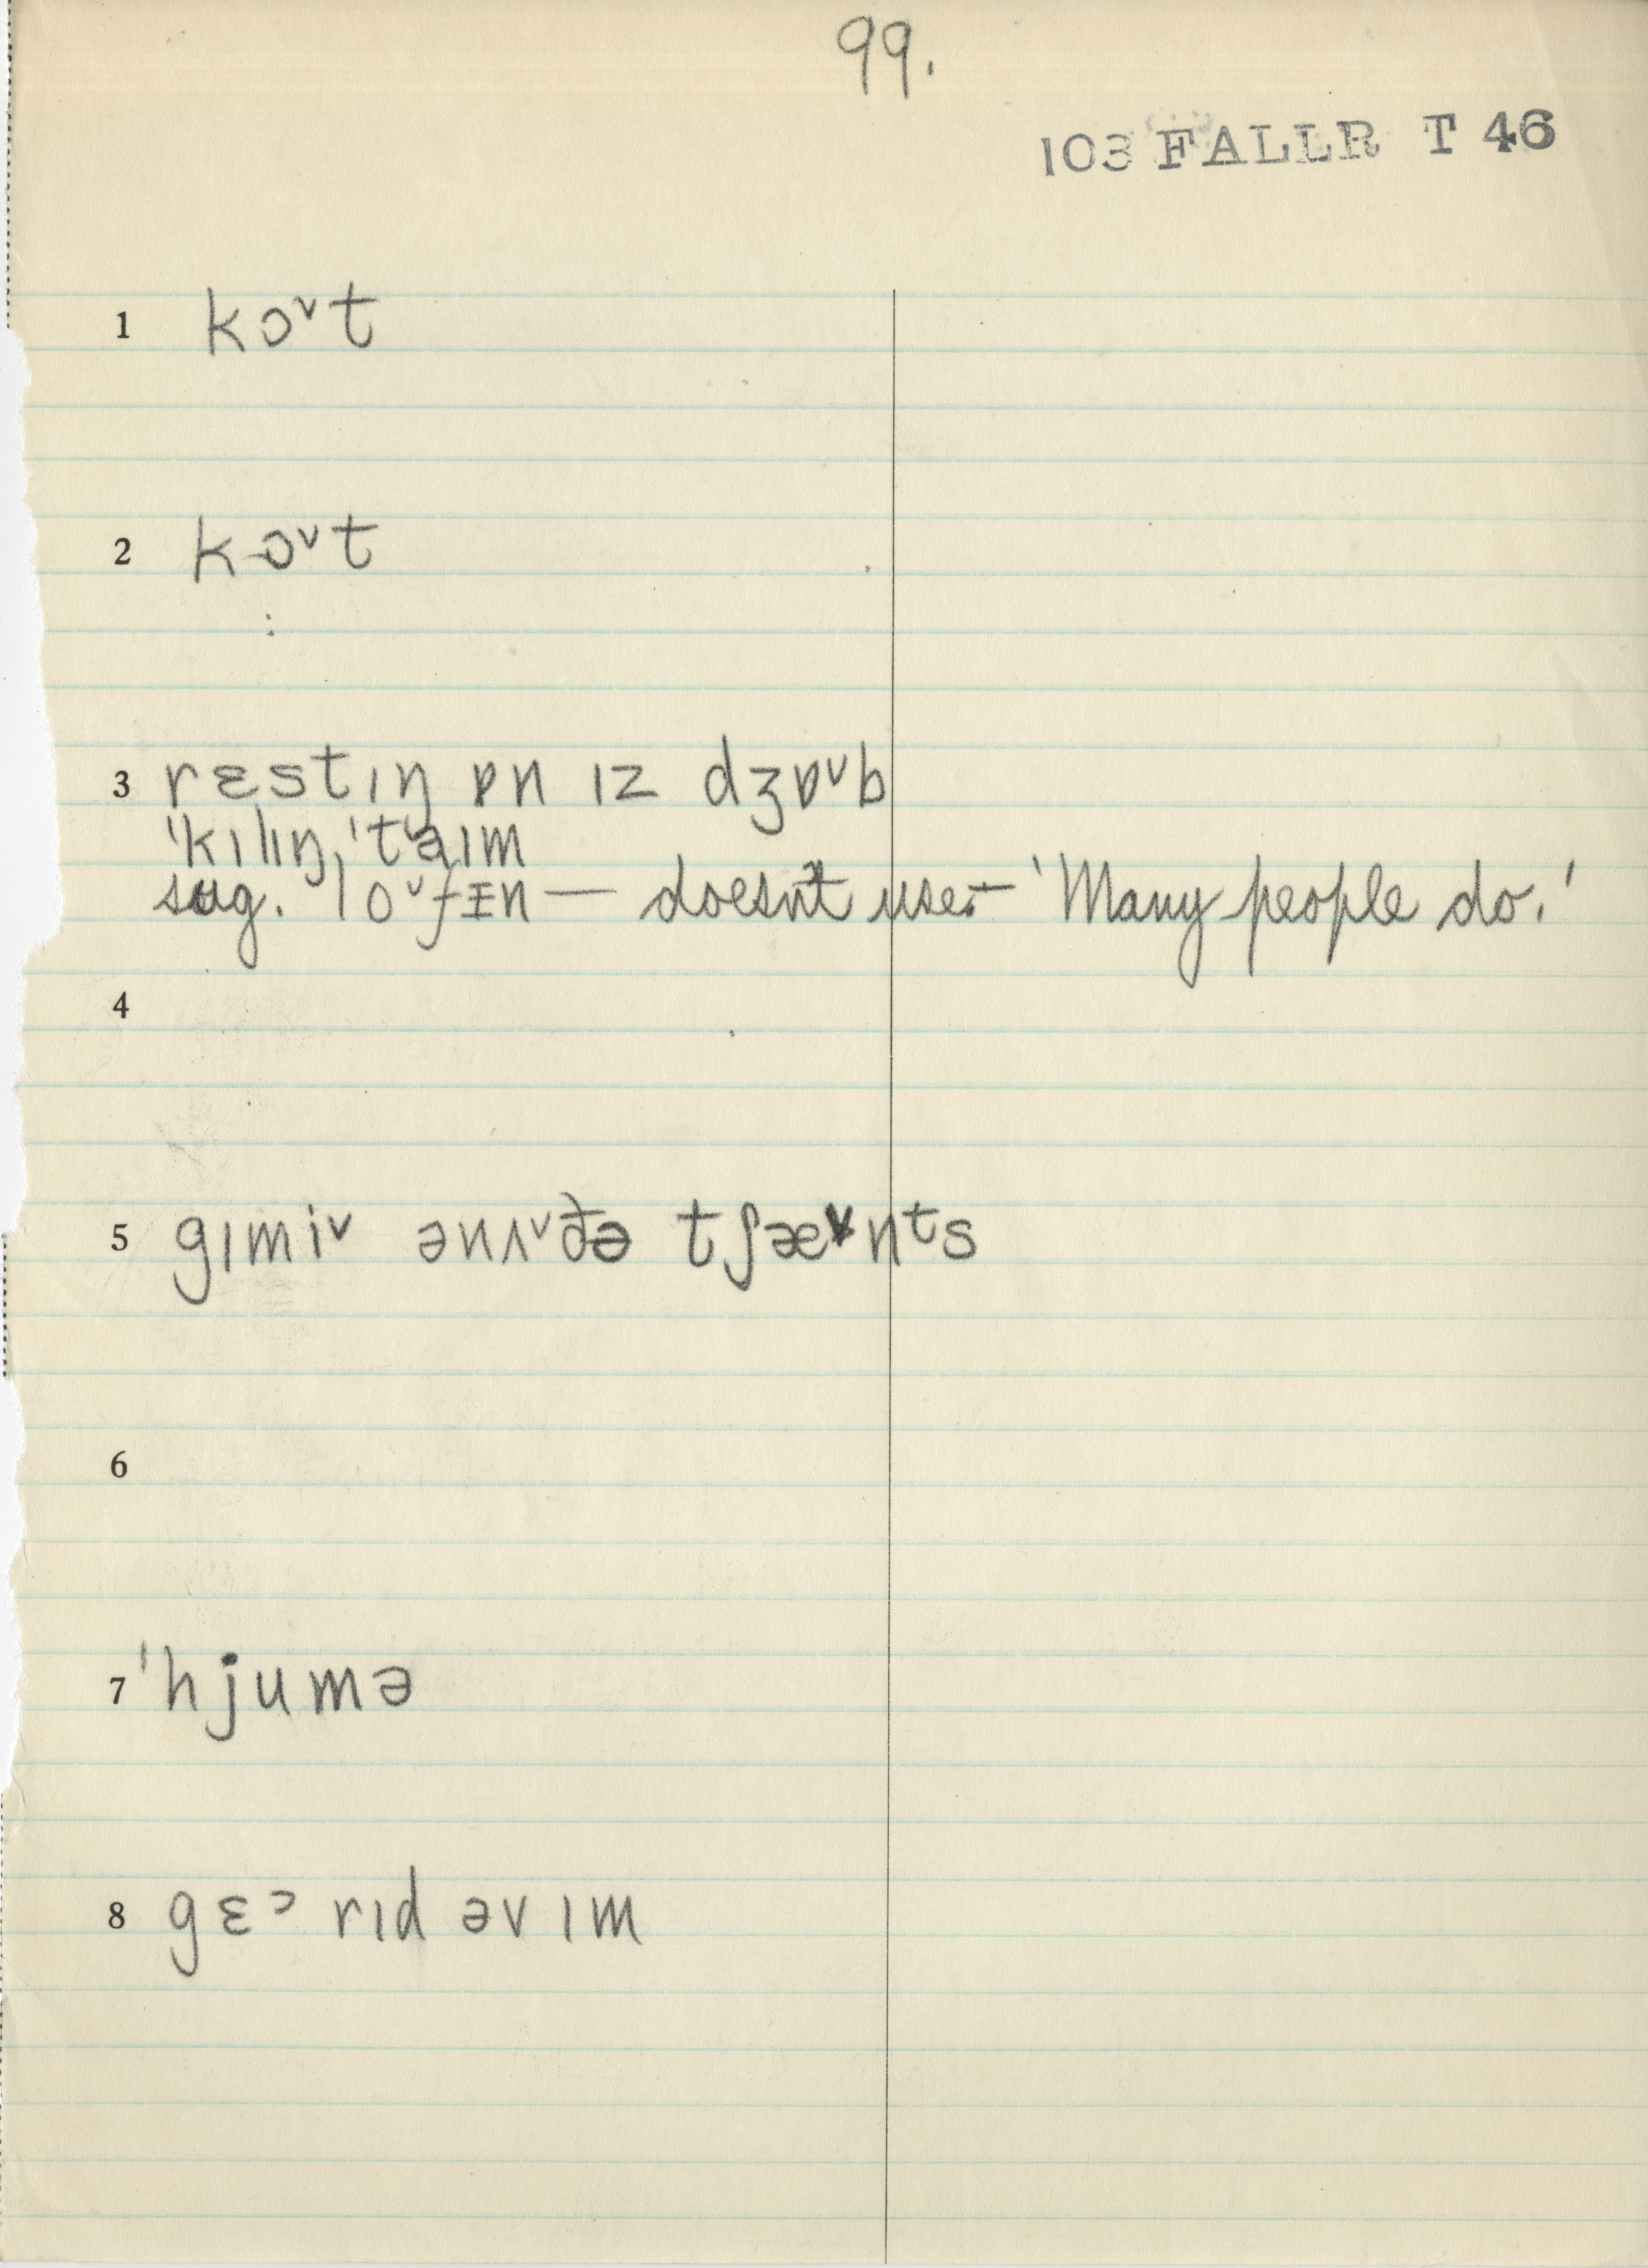 99.
103 FALLR T 46
1 kɔˇt
2 kɔˇt
3 rɛstıŋ ɒn ız dʒɒˇb
'kılıŋ 'taım
sug. loˇfɪn — doesn't use - 'Many people do.'
4
5 gımiˇ ənʌˇðə tʃæˇnᵗs
6
7 'hjumə
8 gɛᵓ rıd əv ım